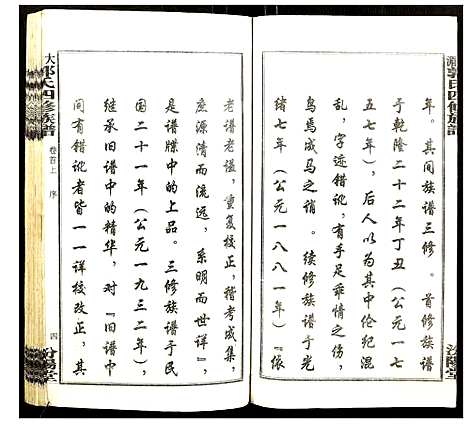 郭氏四修族譜
汾陽堂
年。其间族谱三修。首修族谱
于乾隆二十二年丁丑（公元一七
五七年），后人以为其中伦纪混
乱，字迹错讹，有手足乖情之伤，
鸟焉成马之诮。续修族谱于光
绪七年（公元一八八一年）『依
老谱老谥，重复校正，稽考成集，
庶源清而流远，系明而世详』，
是谱牒中的上品。三修族谱于民
国二十一年（公元一九三二年），
继承旧谱中的精华，对『旧谱中
间有错讹者皆一一详校改正，其
大
郭氏四修族譜
卷首上 序
四
汾陽堂